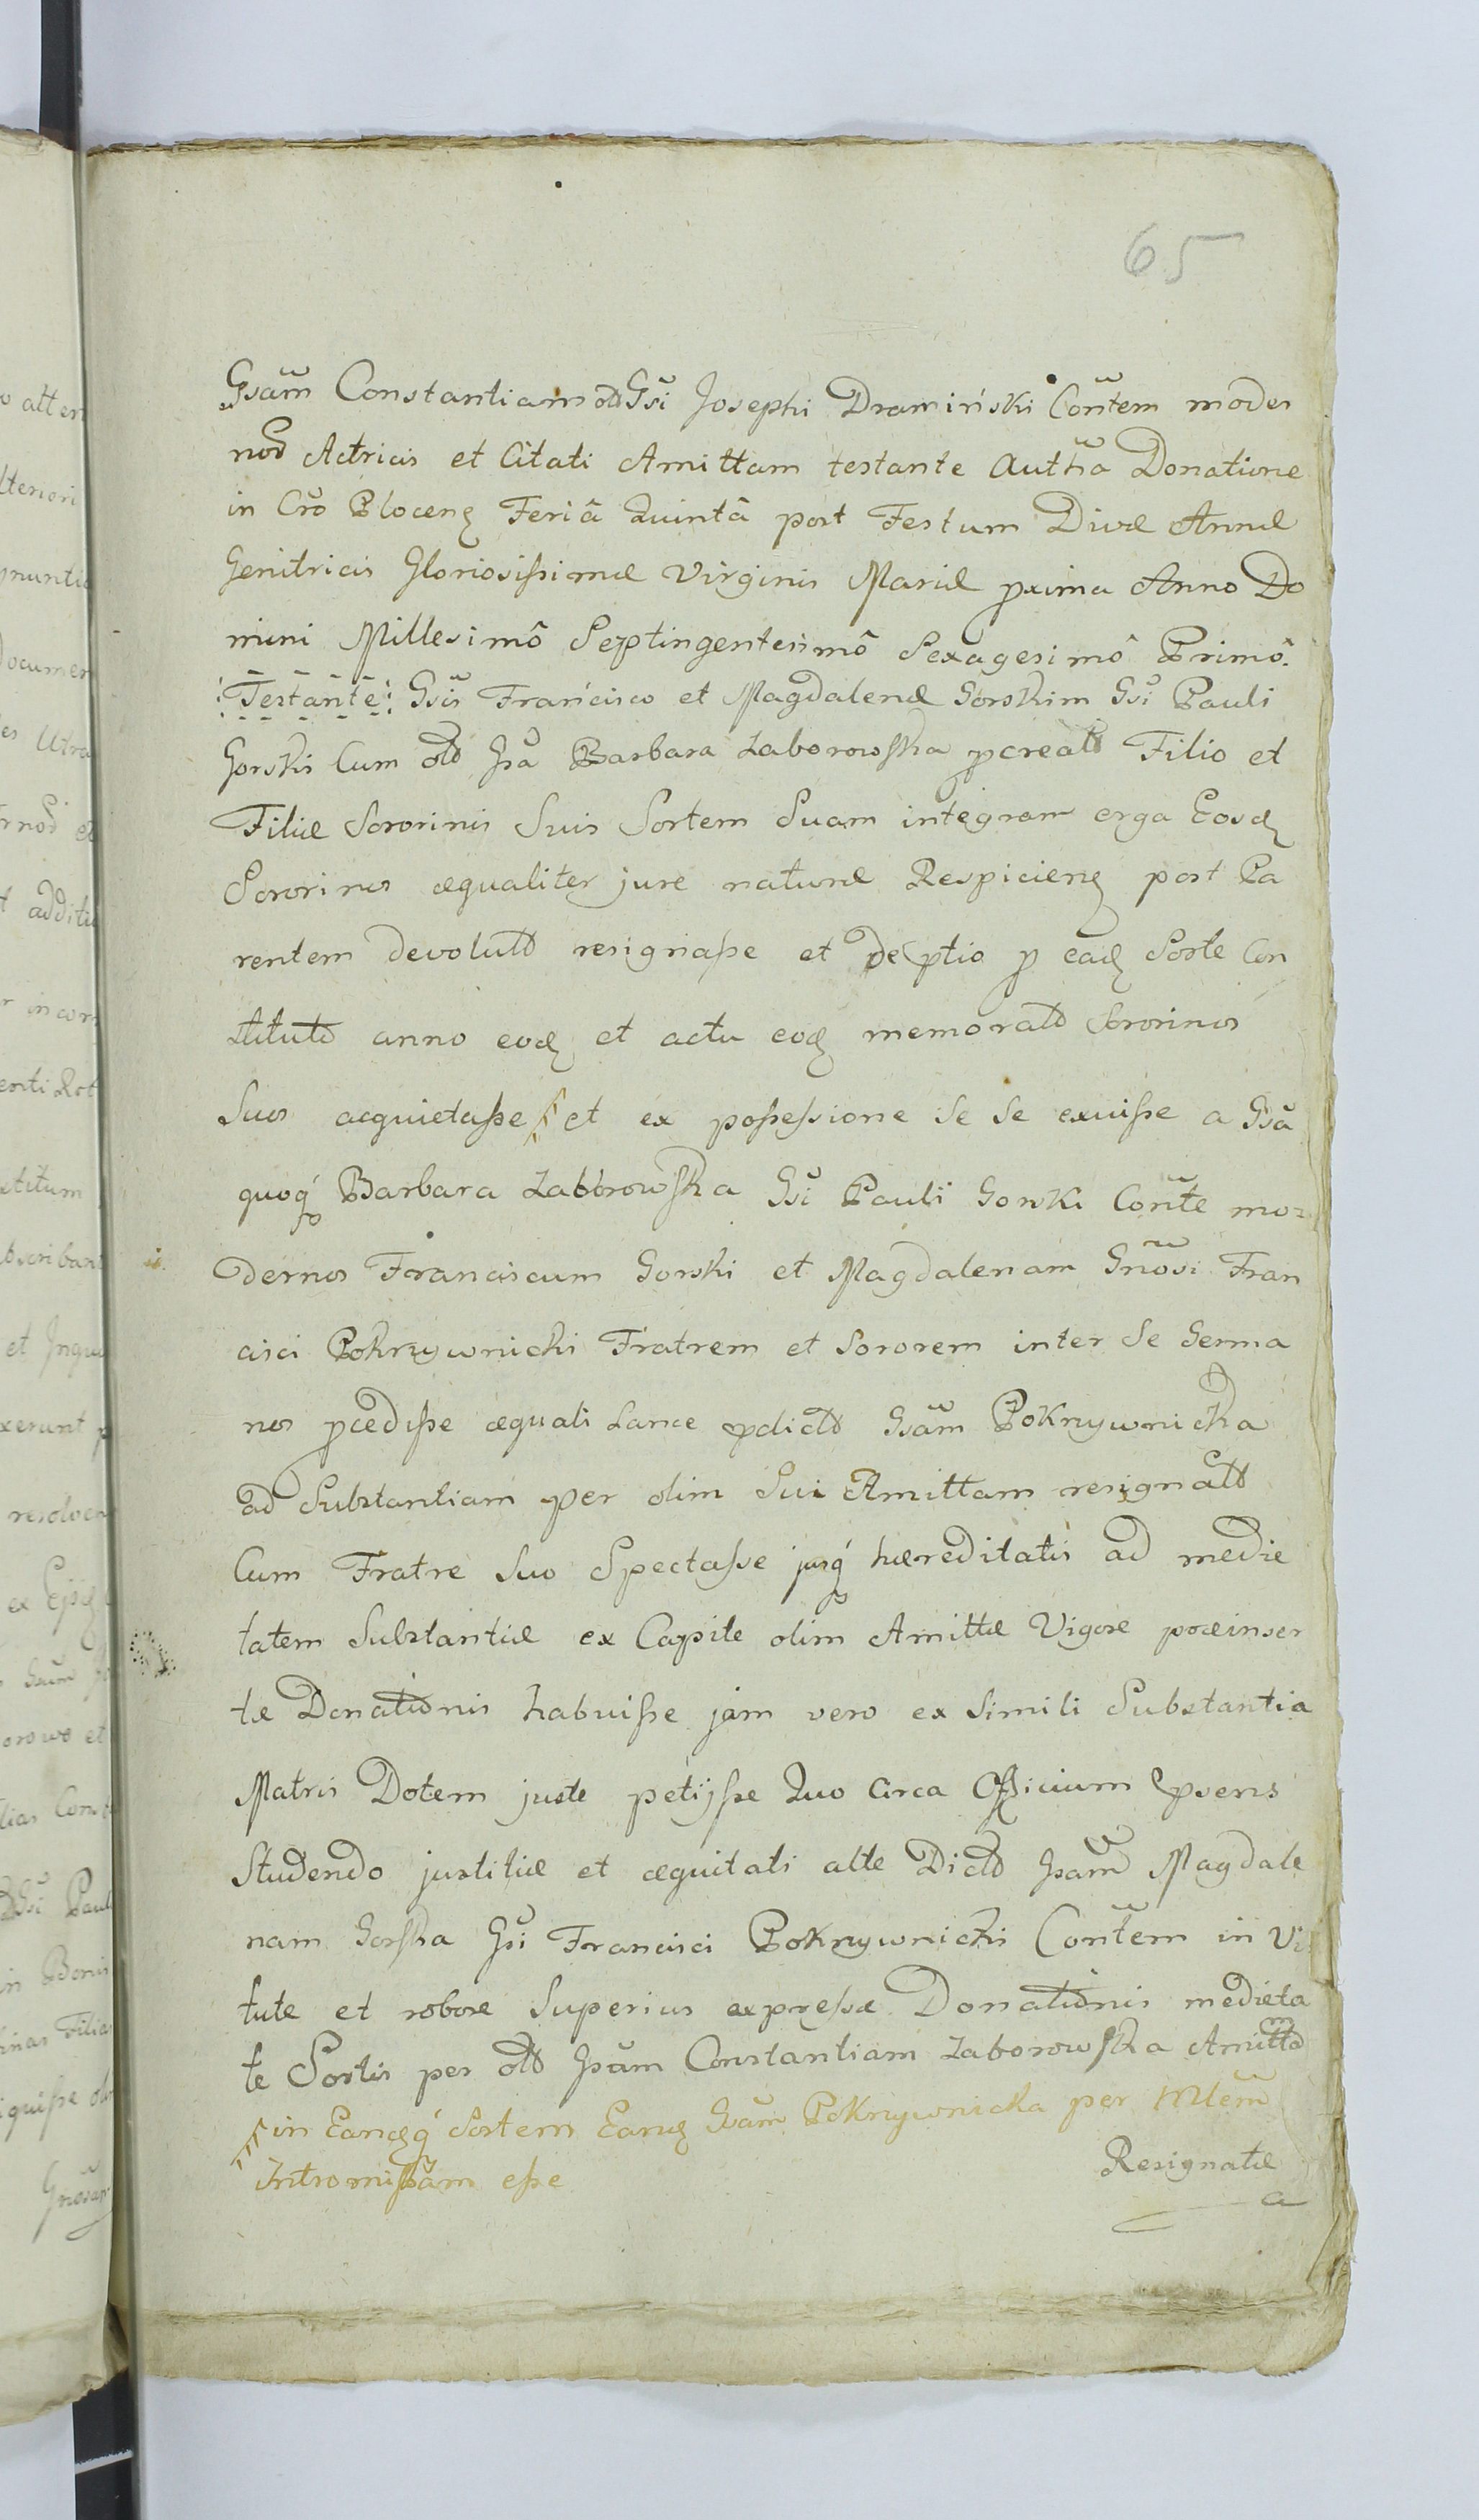 65
Gsam Constantiam old Gsi Josephi Dramiński Contem moder
nod Actricis et Citati Amittam testante Autha Donatione
in Cro Plocen Feriâ Quintâ post Festum Divæ Annæ
Genitricis Gloriosissimæ Virginis Mariæ pxima Anno Do
mini Millesimô Septingentesimô Sexagesimô Primô
Testante Gsis Francisco et Magdalenæ Gorskim Gsi Pauli
Gorski Cum old Gsa Barbara Zaborowska pcreatd Filio et
Filiæ Sororinis Suis Sortem Suam integram erga Eosd
Sororinos æqualiter jure naturæ Respicien post Pa
rentem devolutd resignasse et de ptio p ead Sorte Con
stitutd anno eod et actu eod memoratd Sororinos
Suos acquietasse et ex possessione Se Se exuisse a Gsa
quoq Barbara Zaborowska Gsi Pauli Gorski Conte mo
dernos Franciscum Gorski et Magdalenam Gnosi Fran
cisci Pokrzywnicki Fratrem et Sororem inter Se Germa
nos pcedisse æquali Lance pdictd Gsam Pokrzywnicka
ad Substantiam per olim Sui Amittam resignatd
Cum Fratre Suo Spectasse jusq hæreditatis ad medie
tatem Substantiæ ex Capite olim Amittæ Vigore præinser
tæ Donationis habuisse jam vero ex Simili Substantia
Matris Dotem juste petijsse Quo Circa Officium psens
Studendo justitiæ et æquitati alte Dictd Gsam Magdale
nam Gorska Gsi Francisci Pokrzywnicki Contem in Vi
tute et robore Superius expressæ Donationis medieta
te Sortis per old Gsam Constantiam Zaborowska Amittd
in Eandq Sortem Eand Gsam Pokrzywnicka per Mlem
Intromissam esse
Resignatæ
a